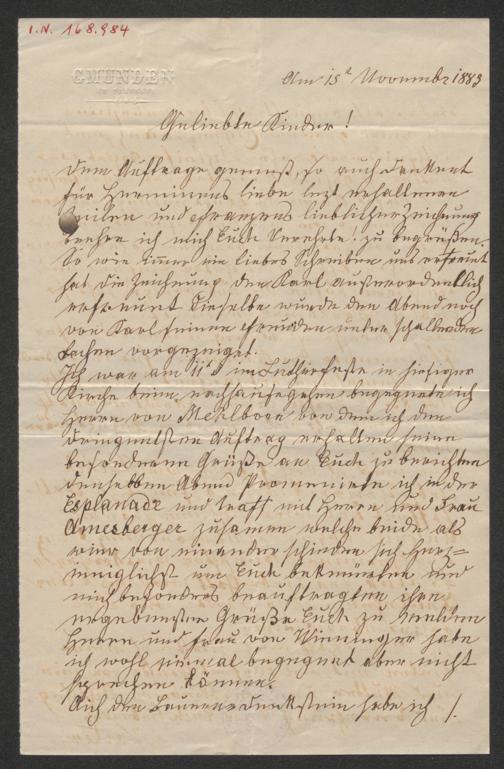 I.N. 168.984
GMUNDEN
Am 15t November 1883
Geliebte Kinder!
Dem Auftrage gemäß, so auch dankend
für Herminens liebe letzt erhaltenen
Zeilen und Franzens lieblicher Zeichnung
beehre ich mich Euch Verehrte! zu begrüßen.
So wie immer ein liebes Schreiben uns erfreut
hat die Zeichnung den Karl außerordentlich
erfreut dieselbe wurde den Abend noch
von Karl seinen Freunden unter schallenden
Lachen vorgezeiget.
Ich war am 11t d im Lutherfeste in hiesiger
Kirche beim nachhausegehen begegnete ich
Herrn von Mehlborn von dem ich den
dringendsten Auftrag erhalten seine
besonderen Grüße an Euch zu berichten
denselben Abend Promenirte ich in der
Esplanade und traff mit Herrn und Frau
Amesberger zusamen welche beide als
wir von einander schieden sich herz=
inniglichst um Euch bekümerten und
mich besonders beauftragten ihre
ergebensten Grüße Euch zu melden
Herrn und Frau von Wieninger habe
ich wohl einmal begegnet aber nicht
sprechen können.
Auch den Lauerer Denkstein habe ich /.